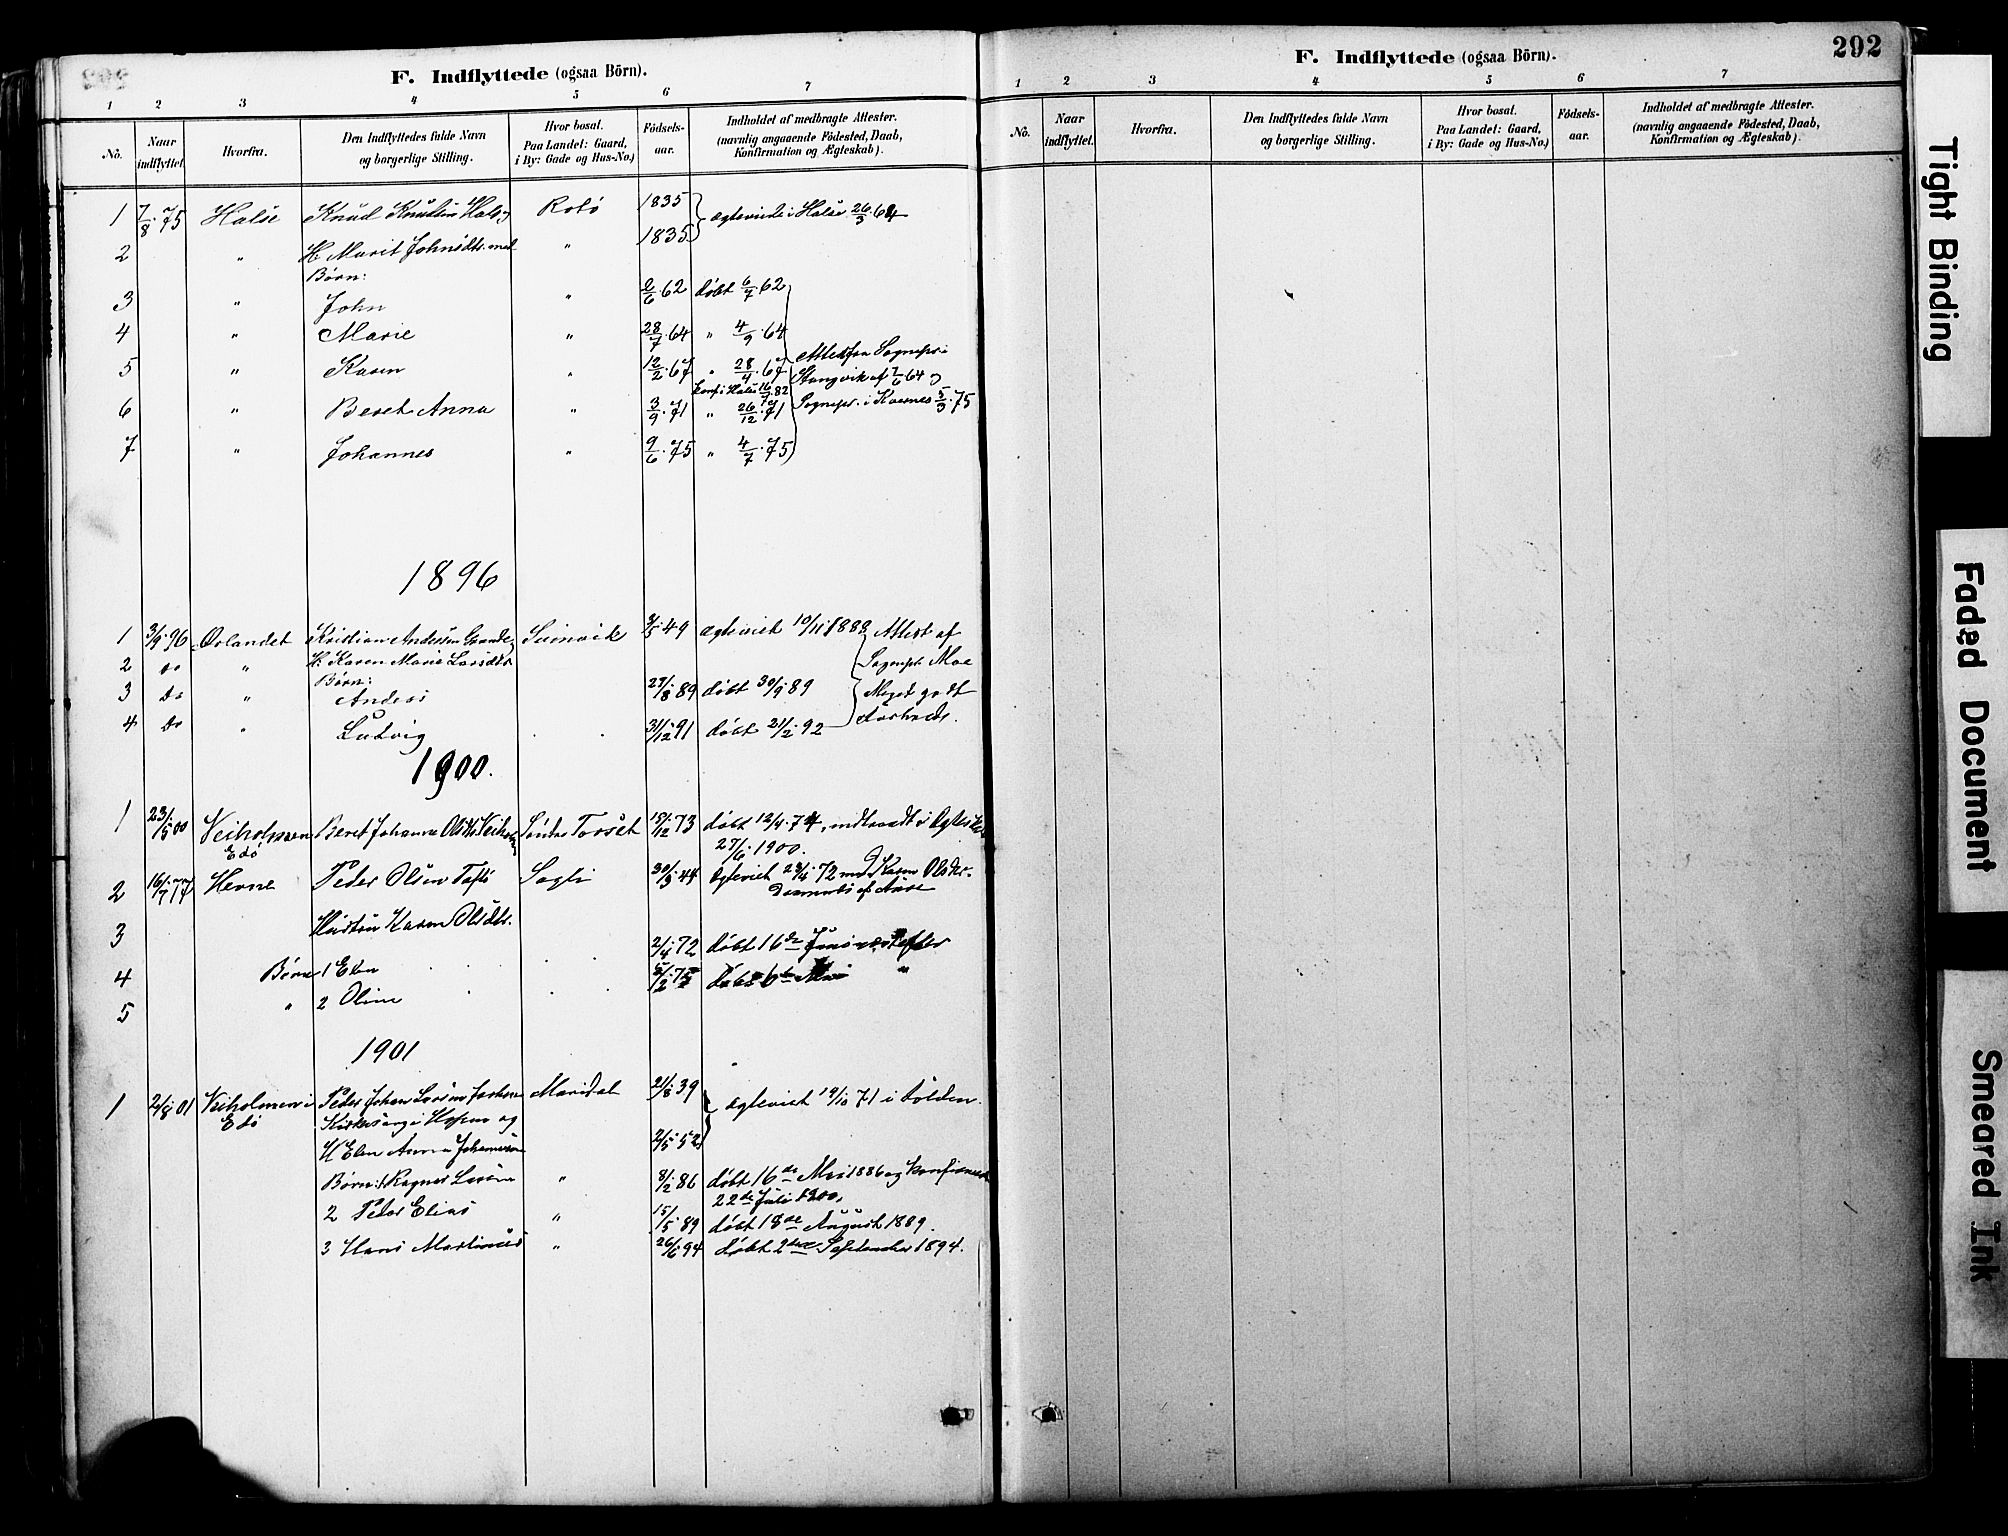 F. Indflyttede (ogsaa Börn).
1 2 3 4 5 6 7
No. Naar indflyttet. Hvorfra. Den Indflyttedes fulde Navn og borgerlige Stilling. Hvor bosat. Paa Landet: Gaard, i By: Gade og Hus-No.) Födsels-aar. Indholdet af medbragte Attester. (navnlig angaaende Födested, Daab, Konfirmation og Ægteskab).
1 7/8.75 Halse Knud Knudsen Halse Rotö 1835 ægteviede i Halse 26/3.64
2 " H. Marit Johnsdtr. med " 1835
Børn:
3 " John " 2/6.62 døbt 6/7.62
4 " Marie " 28/7.64 " 4/9.64
5 " Karen " 12/2.67 " 28/4.67 Attest fra Sognepr. i
Stangvik af 7/6 64 og
6 " Beret Anna " 3/9.71 " 26/12.71 Sognepr. i Kvernes 5/3.75
7 " Johannes " 9/6.75 " 4/7.75
1896
1 3/9.96 Ørlandet Kristian Andersen Grande Svinvik 3/5.49 ægteviet 10/11 1888 Attest af
2 do " H. Karen Marie Larsdtr. Sognepr. Moe
Børn:
3 Do " Anders 27/8 89 døbt 30/9 89 Meget godt
4 Do " Ludvig 31/12 91 døbt 21/2.92
1900.
1 23/5 00 Veiholmen Beret Johanna Olsdtr. 15/12 73 døbt 12/4.74, indtraadt i
Edø 27/6.1900.
2 Hevne Peder Olsen Sagli 30/3.44 Ægteviet 23/4.72 med Karen Olsdtr.
3 Hustru Karen Olsdtr.
2/4.72 døbt 16de Juni næstefter
4 Børn 1 Elen
5 " 2 Oline
1901
1 2/8 01 Veiholmen i Peder Johan Larsen Maridal 21/8 39 ægteviet 19/10 71 i
Edø Kirkesanger i Hopen og
H Elen Anna 2/5 52
Børn: 1 Ragnar Larsen " 8/2 86 døbt 16de Mai 1886 og konfirmeret
22de Juli 1900.
2 Peder Elias " 15/5 89 døbt 18de August 1889.
3 Hans Martinus " 26/6 94 døbt 2den September 1894.
F. Indflyttede (ogsaa Börn).
292
1 2 3 4 5 6 7
No. Naar indflyttet. Hvorfra. Den Indflyttedes fulde Navn og borgerlige Stilling. Hvor bosat. Paa Landet: Gaard, i By: Gade og Hus-No.) Födsels-aar. Indholdet af medbragte Attester. (navnlig angaaende Födested, Daab, Konfirmation og Ægteskab).
Tight Binding
Faded Document
Smeared Ink